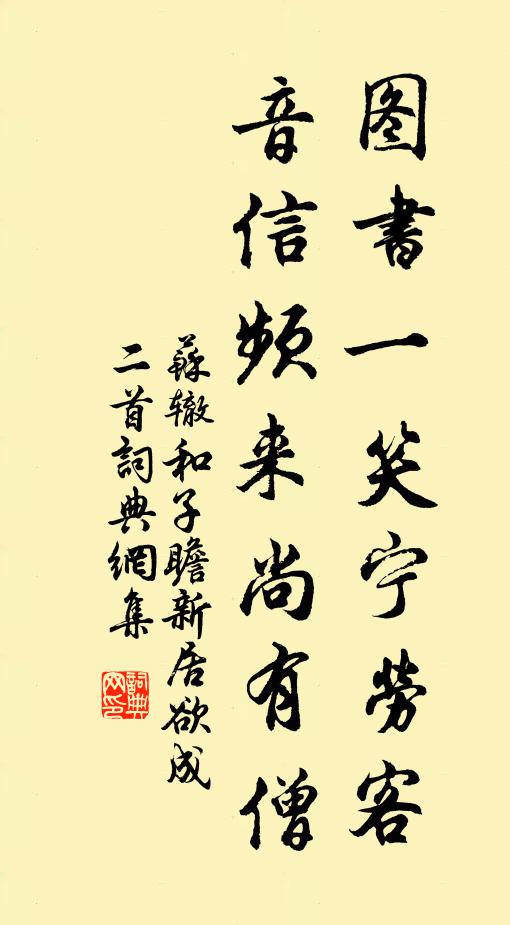 图書一笑宁勞客
音信頻来尚有僧
蘇辙和子瞻新居欲成
二首詞典網集
詞典
网印